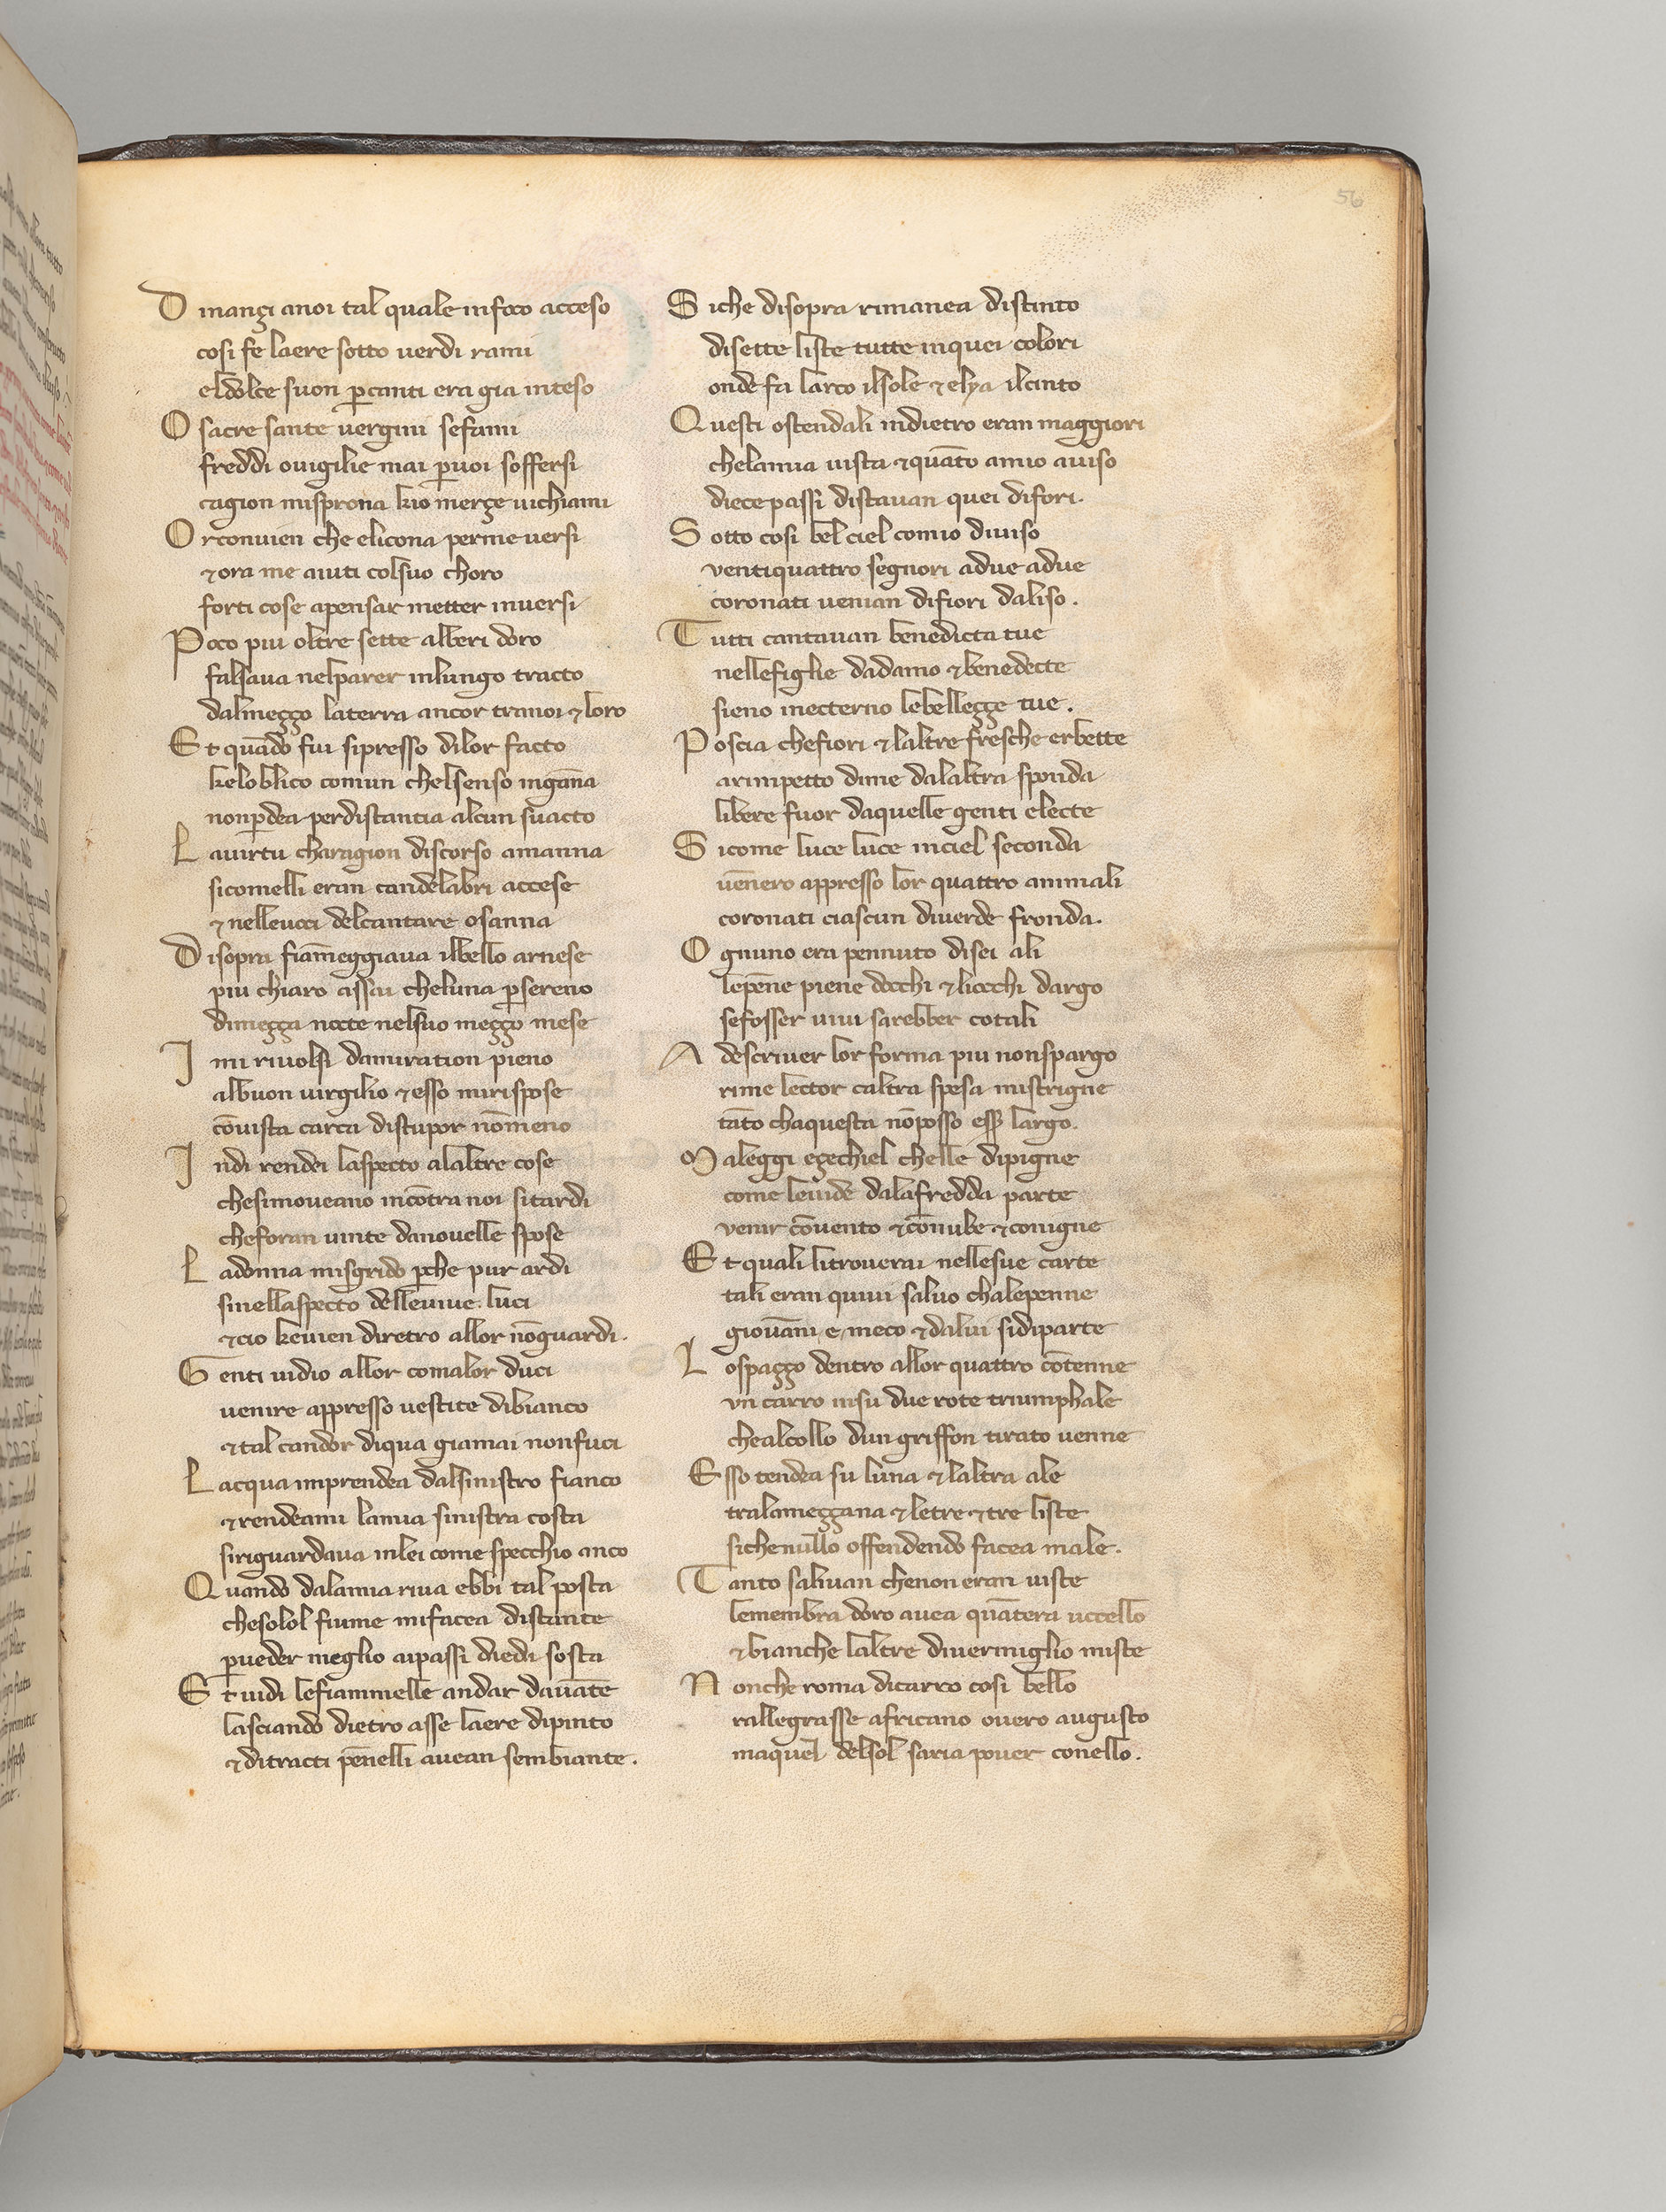 56
D inançi anoi tal quale infoco acceso
cosi fe laere sotto uerdi rami
eldolce suon p̱canti era gia inteso
O sacre sante uergini sefami
freddi ouigilie mai p̱uoi soffersi
cagion misprona kio merçe uichiami
O rconuien che elicona perme uersi
⁊ora me aiuti colsuo choro
forti cose apensar metter inuersi
P oco piu oltre sette alberi doro
falsaua nelparer inlungo tracto
dalmeçço laterra ancor tranoi ⁊loro
E t quādo fui sipresso dilor facto
keloblico comun chelsenso ingāna
nonp̱dea perdistantia alcun suacto
L auirtu charagion discorso amanna
sicomelli eran candelabri accese
⁊nelleuoci delcantare osanna
D isopra fiāmeggiaua ilbello arnese
piu chiaro assai cheluna p̱sereno
dimeçça nocte nelsuo meçço mese
I mi riuolsi damiration pieno
albuon uirgilio ⁊esso mirispose
cōuista carca distupor nōmeno
I ndi rendei laspecto alaltre cose
chesimoueano incōtra noi sitardi
cheforan uinte danouelle spose
L adonna misgrido p̱che pur ardi
sinellaspecto delleuiue luci
⁊cio keuien diretro allor nōguardi.
G enti uidio allor comalor duci
uenire appresso uestite dibianco
⁊tal candor diqua giamai nonfuci
L acqua imprendea dalsinistro fianco
⁊rendeami lamia sinistra costa
siriguardaua inlei come specchio anco
Q uando dalamia riua ebbi tal posta
chesolol fiume mifacea distante
p̱ueder meglio aipassi diedi sosta
E t uidi lefiammelle andar dauāte
lasciando dietro asse laere dipinto
⁊ditracti pēnelli auean sembiante.
S iche disopra rimanea distinto
disette liste tutte inquei colori
onde fa larco ilsole ⁊elya ilcinto
Q uesti ostendali indietro eran maggiori
chelamia uista ⁊quāto amio auiso
diece passi distauan quei difori.
S otto cosi bel ciel comio diuiso
ventiquattro segnori adue adue
coronati uenian difiori daliso.
T utti cantauan benedicta tue
nellefiglie dadamo ⁊benedecte
sieno inecterno lebelleççe tue.
P oscia chefiori ⁊laltre fresche erbette
arimpetto dime dalaltra sponda
libere fuor daquelle genti electe
S icome luce luce inciel seconda
uēnero appresso lor quattro animali
coronati ciascun diuerde fronda.
O gnuno era pennuto disei ali
lepēne piene docchi ⁊liocchi dargo
sefosser uiui sarebber cotali
A descriuer lor forma piu nonspargo
rime lector caltra spesa mistrigne
tāto chaquesta nōposso esser largo.
M aleggi eçechiel chelle dipigne
come leuide dalafredda parte
venir cōuento ⁊cōnube ⁊conigne
E t quali litrouerai nellesue carte
tali eran quiui saluo chalepenne
giouāni e meco ⁊dalui sidiparte
L ospaçço dentro allor quattro cōtenne
vn carro insu due rote triumphale
chealcollo dun griffon tirato uenne
E sso tendea su luna ⁊laltra ale
tralameççana ⁊letre ⁊tre liste
sichenullo offendendo facea male.
T anto saliuan chenon eran uiste
lemembra doro auea quātera uccello
⁊bianche laltre diuermiglio miste
N onche roma dicarro cosi bello
rallegrasse africano ouero augusto
maquel delsol saria pouer conello.